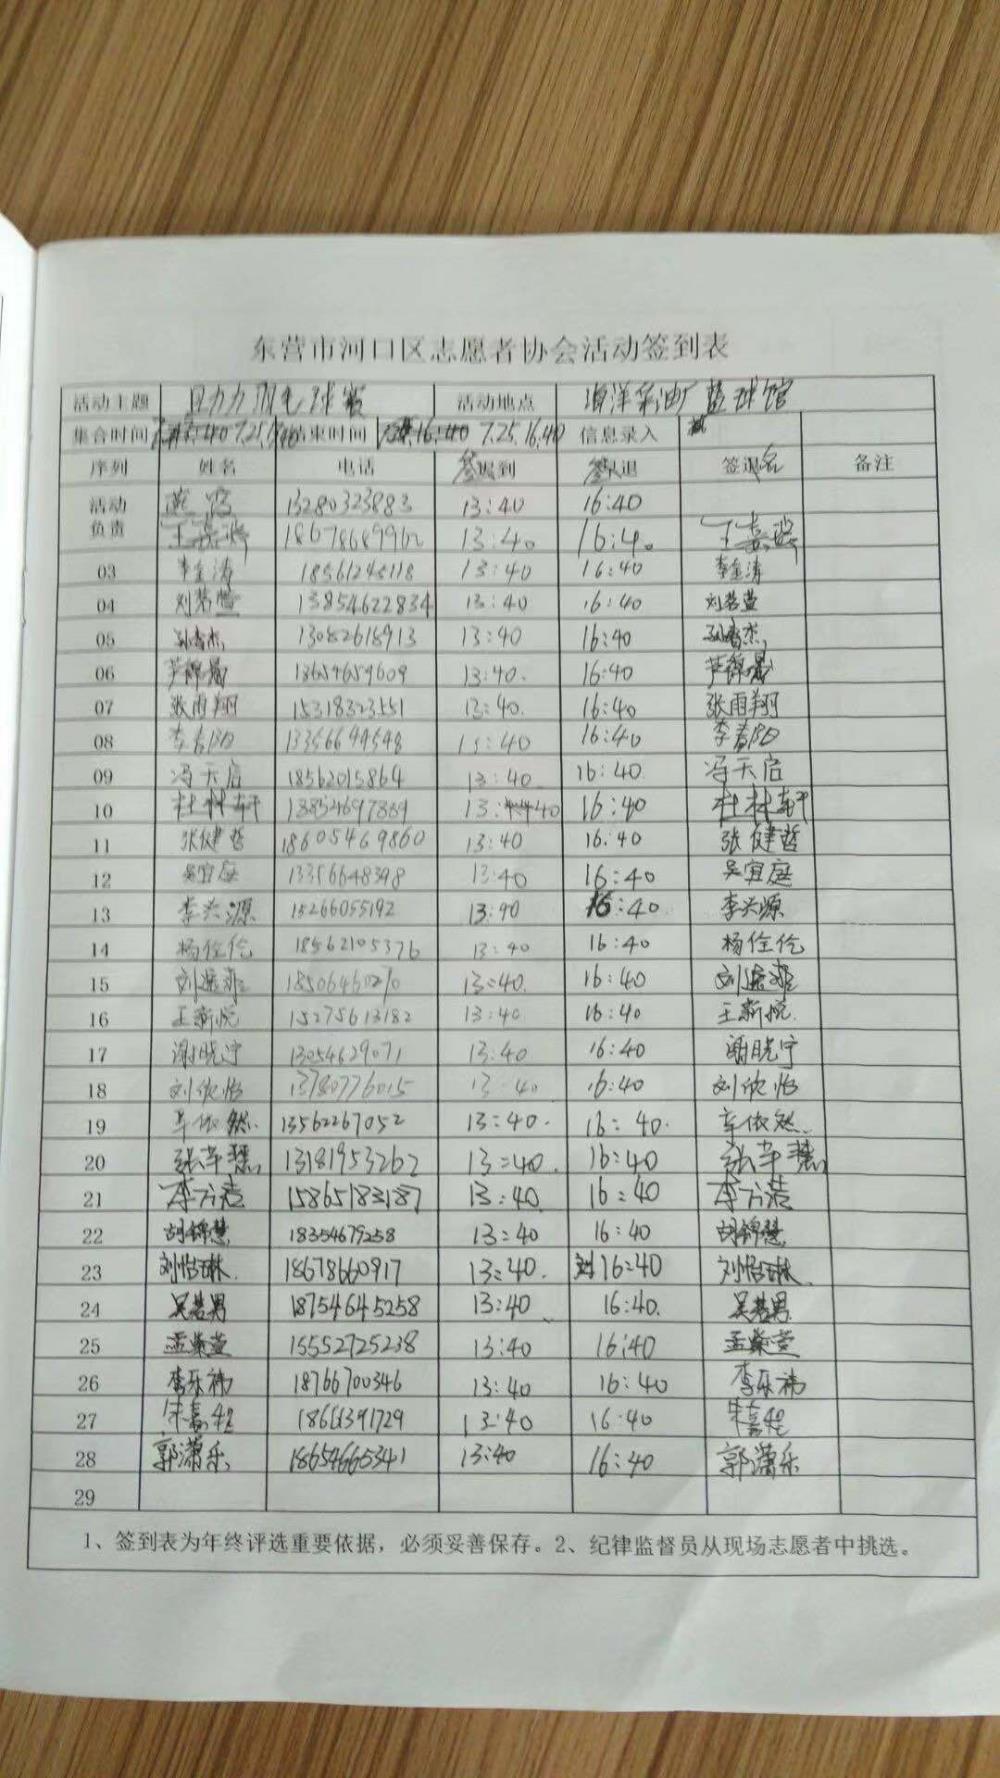 东营市河口区志愿者协会活动签到表
活动主题 球赛 活动地点 海洋采油厂篮球馆
集合时间 7.25. 结束时间 16:40 7.25.16.40 信息录入
序列 姓名 电话 签到 签退 签名 备注
活动负责 13280323883 13:40 16:40
18678689962 13:40 16:40
03 李金涛 18561248118 13:40 16:40 李金涛
04 刘若萱 13854622834 13:40 16:40 刘若萱
05 13082618913 13:40 16:40
06 13654659609 13:40. 16:40
07 张雨翔 15318323551 13:40. 16:40 张雨翔
08 李春阳 13:40 16:40 李春阳
09 冯天启 18562015864 13:40. 16:40. 冯天启
10 杜林轩 13:40 16:40 杜林轩
11 张健哲 18605469860 13:40 16.40 张健哲
12 吴宜庭 13356648398 13:40 16:40 吴宜庭
13 李兴源 15266055192 13:40 16:40 李兴源
14 杨佺伦 18562105376 13:40 16:40 杨佺伦
15 13:40. 16:40
16 王新悦 15275613182 13:40. 16:40 王新悦.
17 谢晓宁 13054629071 13:40 16:40 谢晓宁
18 刘依怡 13780776015 13:40 16:40 刘依怡
19 车依然. 13562267052 13:40. 16:40. 车依然.
20 13181953262 13:40. 16:40
21 李方浩 15865183187 13:40. 16:40 李方浩
22 胡锦慧 18354679258 13:40 16:40 胡锦慧
23 刘怡琳. 18678660917 13:40. 16:40 刘怡琳.
24 吴若男 18754645258 13:40 16:40. 吴若男
25 孟紫萱 15552725238 13:40 16:40 孟紫萱
26 李乐祎 18766700346 13:40 16:40 李乐祎
27 宋嘉程 18661391729 13:40 16:40 宋嘉程
28 郭潇乐 18654665341 13:40 16:40 郭潇乐
29
1、签到表为年终评选重要依据，必须妥善保存。2、纪律监督员从现场志愿者中挑选。